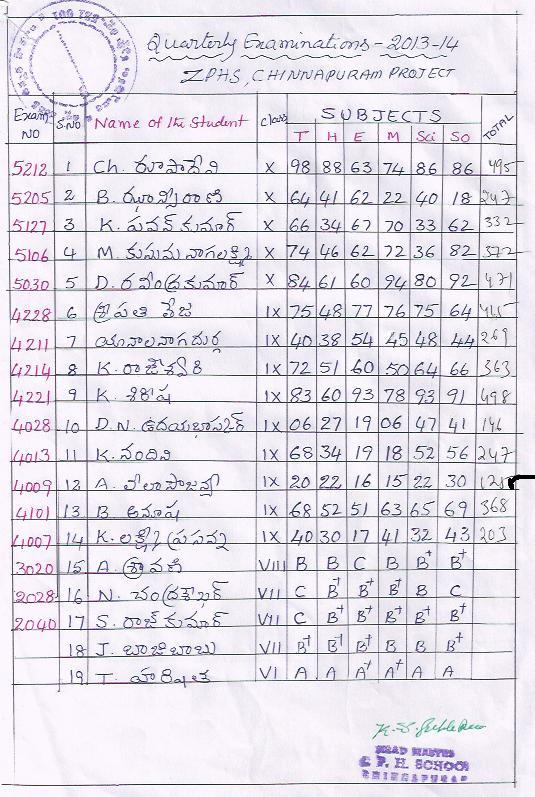 Quarterly Examinations - 2013-14
ZPHS, CHINNAPURAM PROJECT
Exam NO S.NO Name of the Student class SUBJECTS TOTAL
T H E M Sci So
5212 1 Ch. రూపాదేవి X 98 88 63 74 86 86 495
5205 2 B. ఝాన్సీరాణి X 64 41 62 22 40 18 247
5127 3 K. పవన్ కుమార్ X 66 34 67 70 33 62 332
5106 4 M. కుసుమ నాగలక్ష్మి X 74 46 62 72 36 82 372
5030 5 D. రవీంద్రకుమార్ X 84 61 60 94 80 92 471
4228 6 శ్రీపతి తేజ IX 75 48 77 76 75 64
4211 7 యానాలనాగదుర్గ IX 40 38 54 45 48 44 269
4214 8 K. రాజేశ్వరి IX 72 51 60 50 64 66 363
4221 9 K. శిరీష IX 83 60 93 78 93 91 498
4028 10 D.N. ఉదయభాస్కర్ IX 06 27 19 06 47 41 146
4013 11 K. నందిని IX 68 34 19 18 52 56 247
4009 12 A. IX 20 22 16 15 22 30 125
4101 13 B. అనూష IX 68 52 51 63 65 69 368
4007 14 K. లక్ష్మీ ప్రసన్న IX 40 30 17 41 32 43 203
3020 15 A. శ్రావణి VIII B B C B B+ B+
2028 16 N. చంద్రశేఖర్ VII C B+ B+ B+ B C
2040 17 S. రాజ్ కుమార్ VII C B+ B+ B+ B+ B+
18 J. బాజిబాబు VII B+ B+ B B B B+
19 T. హారిషిత VI A A A+ A+ A A
HEAD MASTER
Z. P. H. SCHOOL
CHINNAPURAM